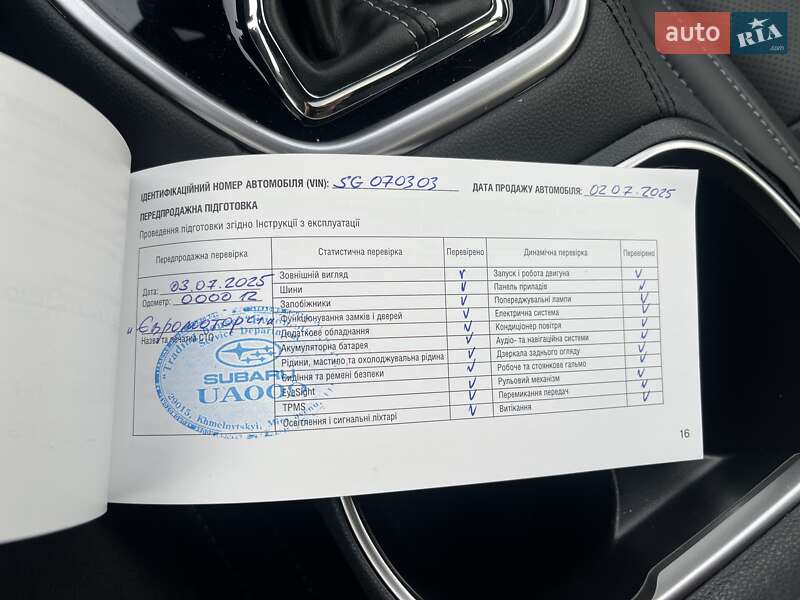 auto RIA.com
ІДЕНТИФІКАЦІЙНИЙ НОМЕР АВТОМОБІЛЯ (VIN): SG 070303 ДАТА ПРОДАЖУ АВТОМОБІЛЯ: 02 07.2025
ПЕРЕДПРОДАЖНА ПІДГОТОВКА
Проведення підготовки згідно Інструкції з експлуатації
Передпродажна перевірка Статистична перевірка Перевірено Динамічна перевірка Перевірено
Дата: 03.07.2025
Одометр: 000012
"Євромоторги"
Назва та печатка СТО
Service Department
SUBARU
UA002
29015, Khmelnytskyi
Зовнішній вигляд Запуск і робота двигуна
Шини Панель приладів
Запобіжники Попереджувальні лампи
Функціонування замків і дверей Електрична система
Додаткове обладнання Кондиціонер повітря
Акумуляторна батарея Аудіо- та навігаційна системи
Рідини, мастило,та охолоджувальна рідина Дзеркала заднього огляду
Сидіння та ремені безпеки Робоче та стоянкове гальмо
EyeSight Рульовий механізм
TPMS Перемикання передач
Освітлення і сигнальні ліхтарі Витікання
16